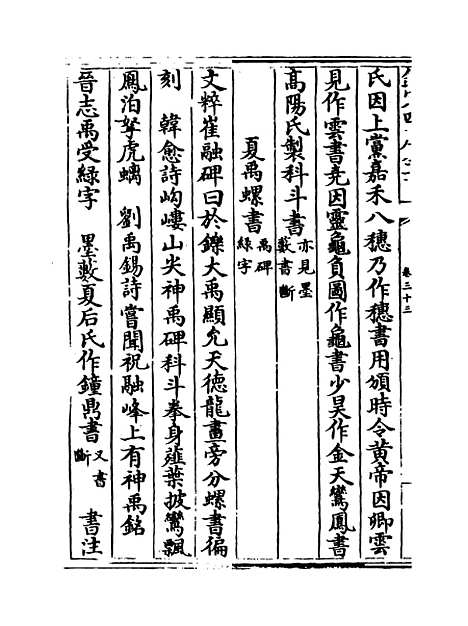 氏因上黨嘉禾八穗乃作穗書用頒時令黃帝因卿雲
見作雲書堯因靈龜負圖作龜書少昊作金天鸞鳳書
高陽氏製科斗書亦見墨
藪書斷
夏禹螺書禹碑
綠字
文粹崔融碑曰於鑠大禹顯允天德龍畫旁分螺書徧
刻 韓愈詩岣嶁山尖神禹碑科斗拳身薤葉披鸞飄
鳳泊拏虎螭 劉禹錫詩嘗聞祝融峰上有神禹銘
晉志禹受綠字 墨藪夏后氏作鐘鼎書又書
斷 書注
卷二十三